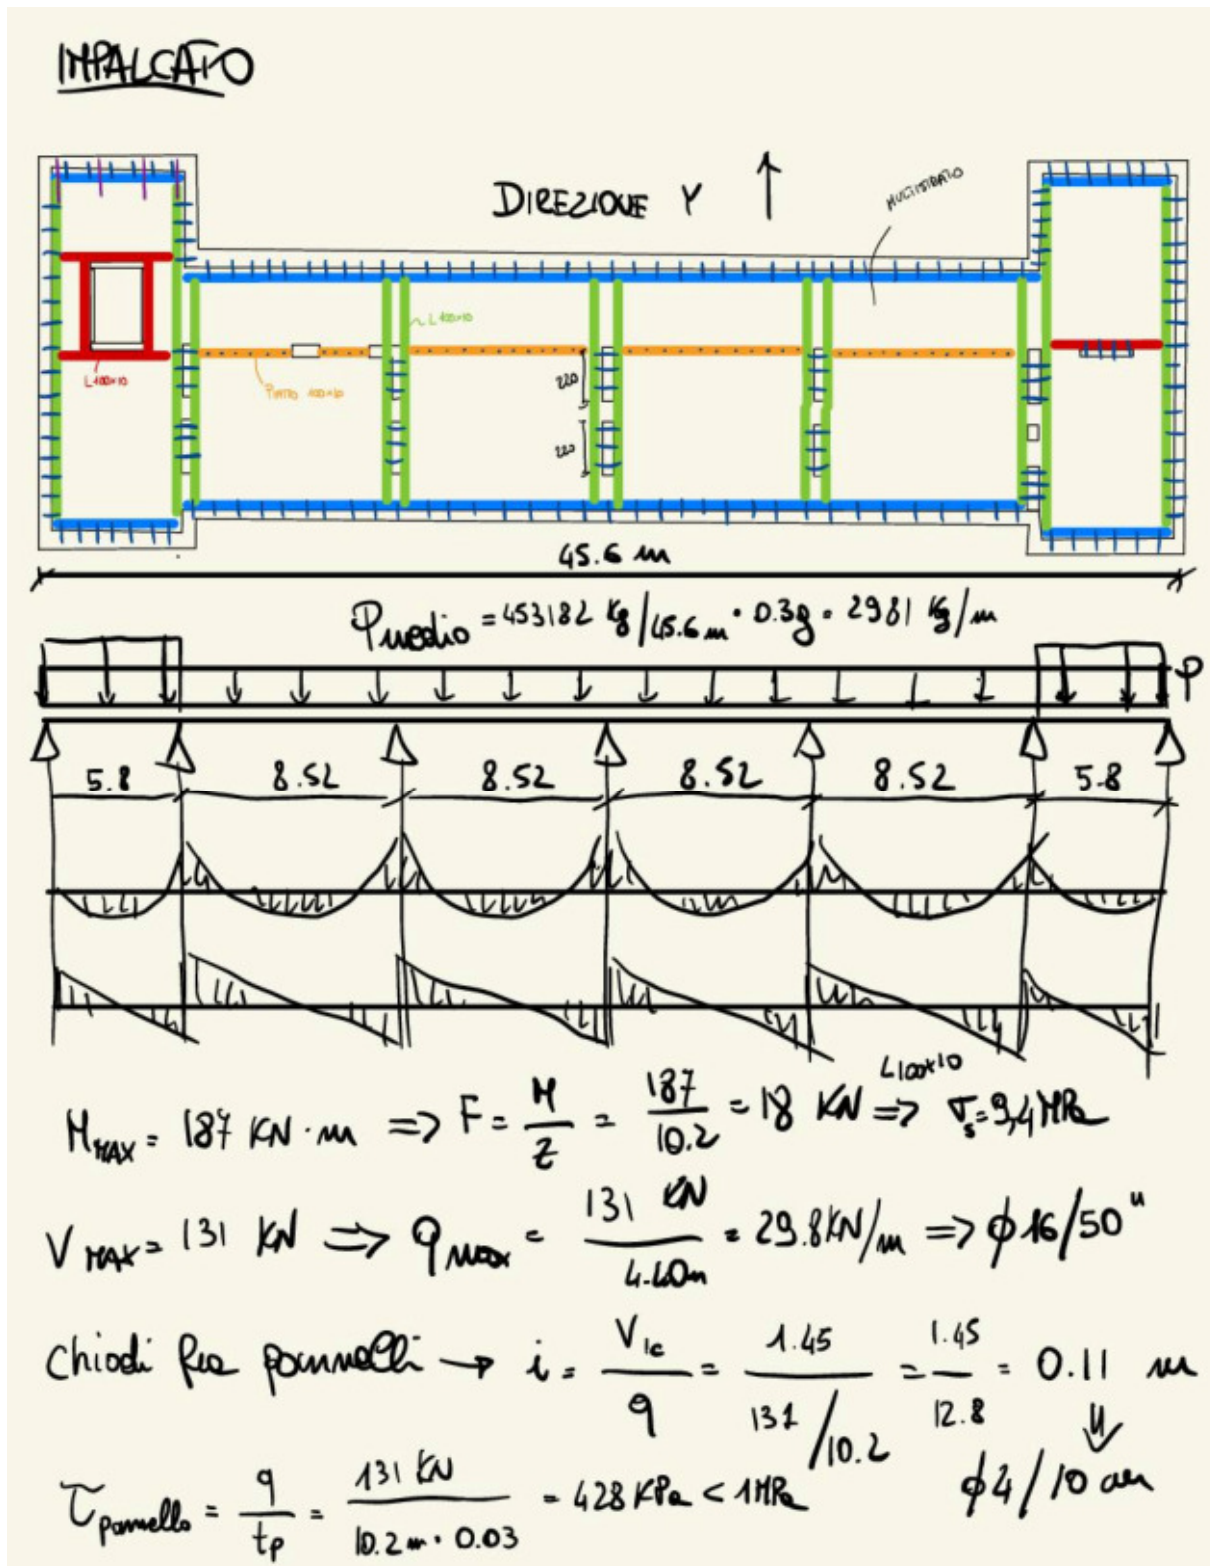 IMPALCATO
DIREZIONE Y
MULTISTRATO
L100x10
L100x10
PIATTO 100x10
220
220
45.6 m
Pmedio = 453182 kg/45.6m · 0.3g = 2981 kg/m
P
5.8 8.52 8.52 8.52 8.52 5.8
M MAX = 187 KN·m => F = M/Z = 187/10.2 = 18 KN => L100x10 σs = 9,4 MPa
V MAX = 131 KN => q max = 131 KN/4.40m = 29.8 KN/m => ϕ16/50"
Chiodi fra pannelli → i = V1c/q = 1.45/131/10.2 = 1.45/12.8 = 0.11 m
ϕ4/10 cm
τpannello = q/tp = 131 KN/10.2m · 0.03 = 428 KPa < 1MPa